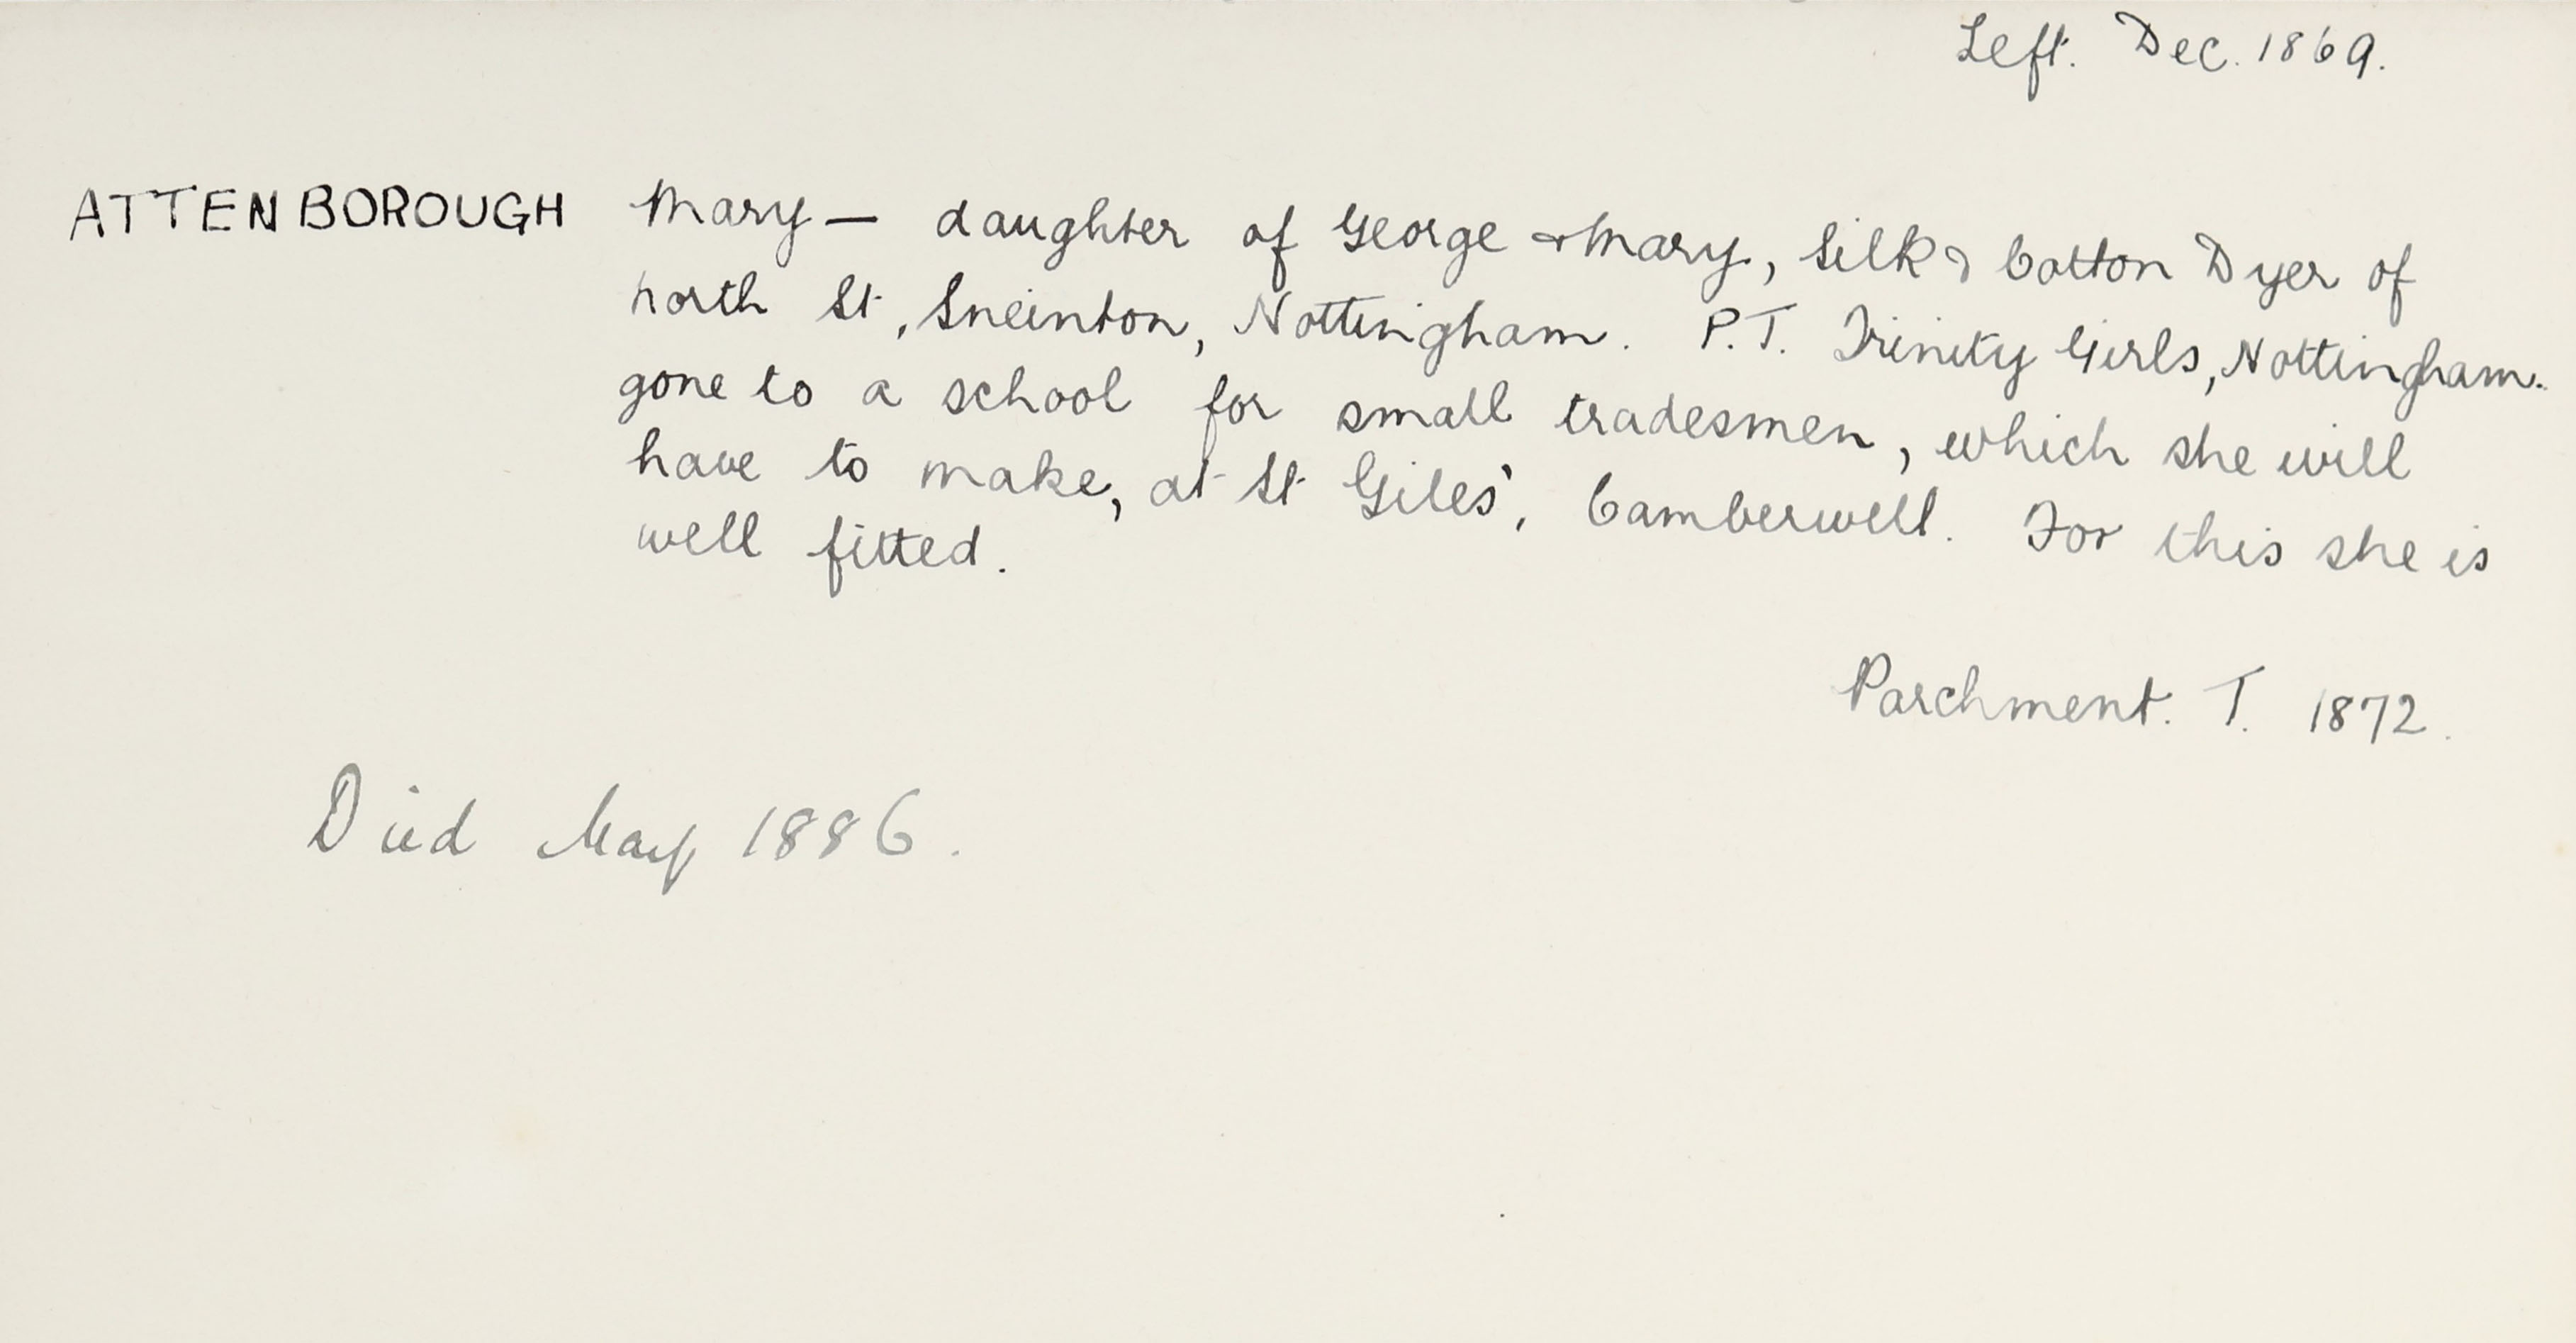 Left. Dec. 1869.
ATTENBOROUGH Mary — daughter of George & Mary, Silk & Cotton Dyer of
North St, Sneinton, Nottingham. P.T. Trinity Girls, Nottingham.
gone to a school for small tradesmen, which she will
have to make, at St Giles', Camberwell. For this she is
well fitted.
Parchment. T. 1872.
Died May 1886.